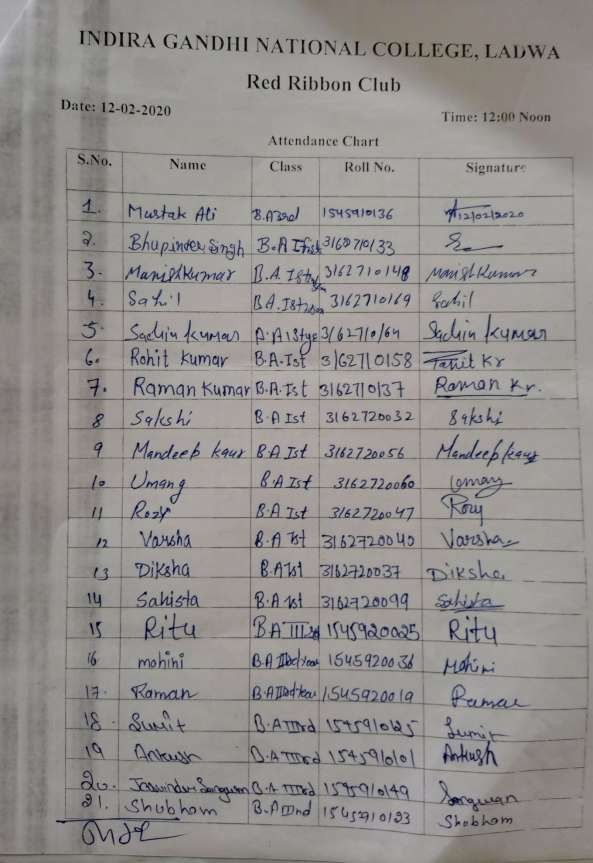 INDIRA GANDHI NATIONAL COLLEGE, LADWA
Red Ribbon Club
Date: 12-02-2020
Time: 12:00 Noon
Attendance Chart
S.No. Name Class Roll No. Signature
1. Mustak Ali B.A3rd 1545910136 12/02/2020
2. Bhupinder Singh B.A 3162710133
3. Manish Kumar B.A. Ist 3162710148 Manish Kumar
4. Sahil BA. Ist 3162710169 Sahil
5. Sachin Kumar 3162710164 Sachin Kumar
6. Rohit Kumar B.A. Ist 3162710158 Kr
7. Raman Kumar B.A. Ist 3162710137 Raman Kr.
8 Sakshi B.A Ist 3162720032 Sakshi
9 Mandeep kaur B.A Ist 3162720056 Mandeep kaur
10 Umang B.A Ist 3162720060 Umang
11 Rozy B.A Ist 3162720047 Rozy
12 Varsha B.A Ist 3162720040 Varsha
13 Diksha B.A Ist 3162720037 Diksha
14 Sahista B.A Ist 3162720099 Sahista
15 Ritu BA IIIrd 1545920025 Ritu
16 mohini B.A IIIrd Year 1545920036 Mohini
17. Raman B.A IIIrd Year 1545920019 Raman
18. Sumit B.A IIIrd Sumit
19 Ankush B.A IIIrd 1545910101 Ankush
20. Jaswinder Sangwan B.A IIIrd 1545910149 Sangwan
21. Shubham B.A IIIrd 1545910123 Shubham